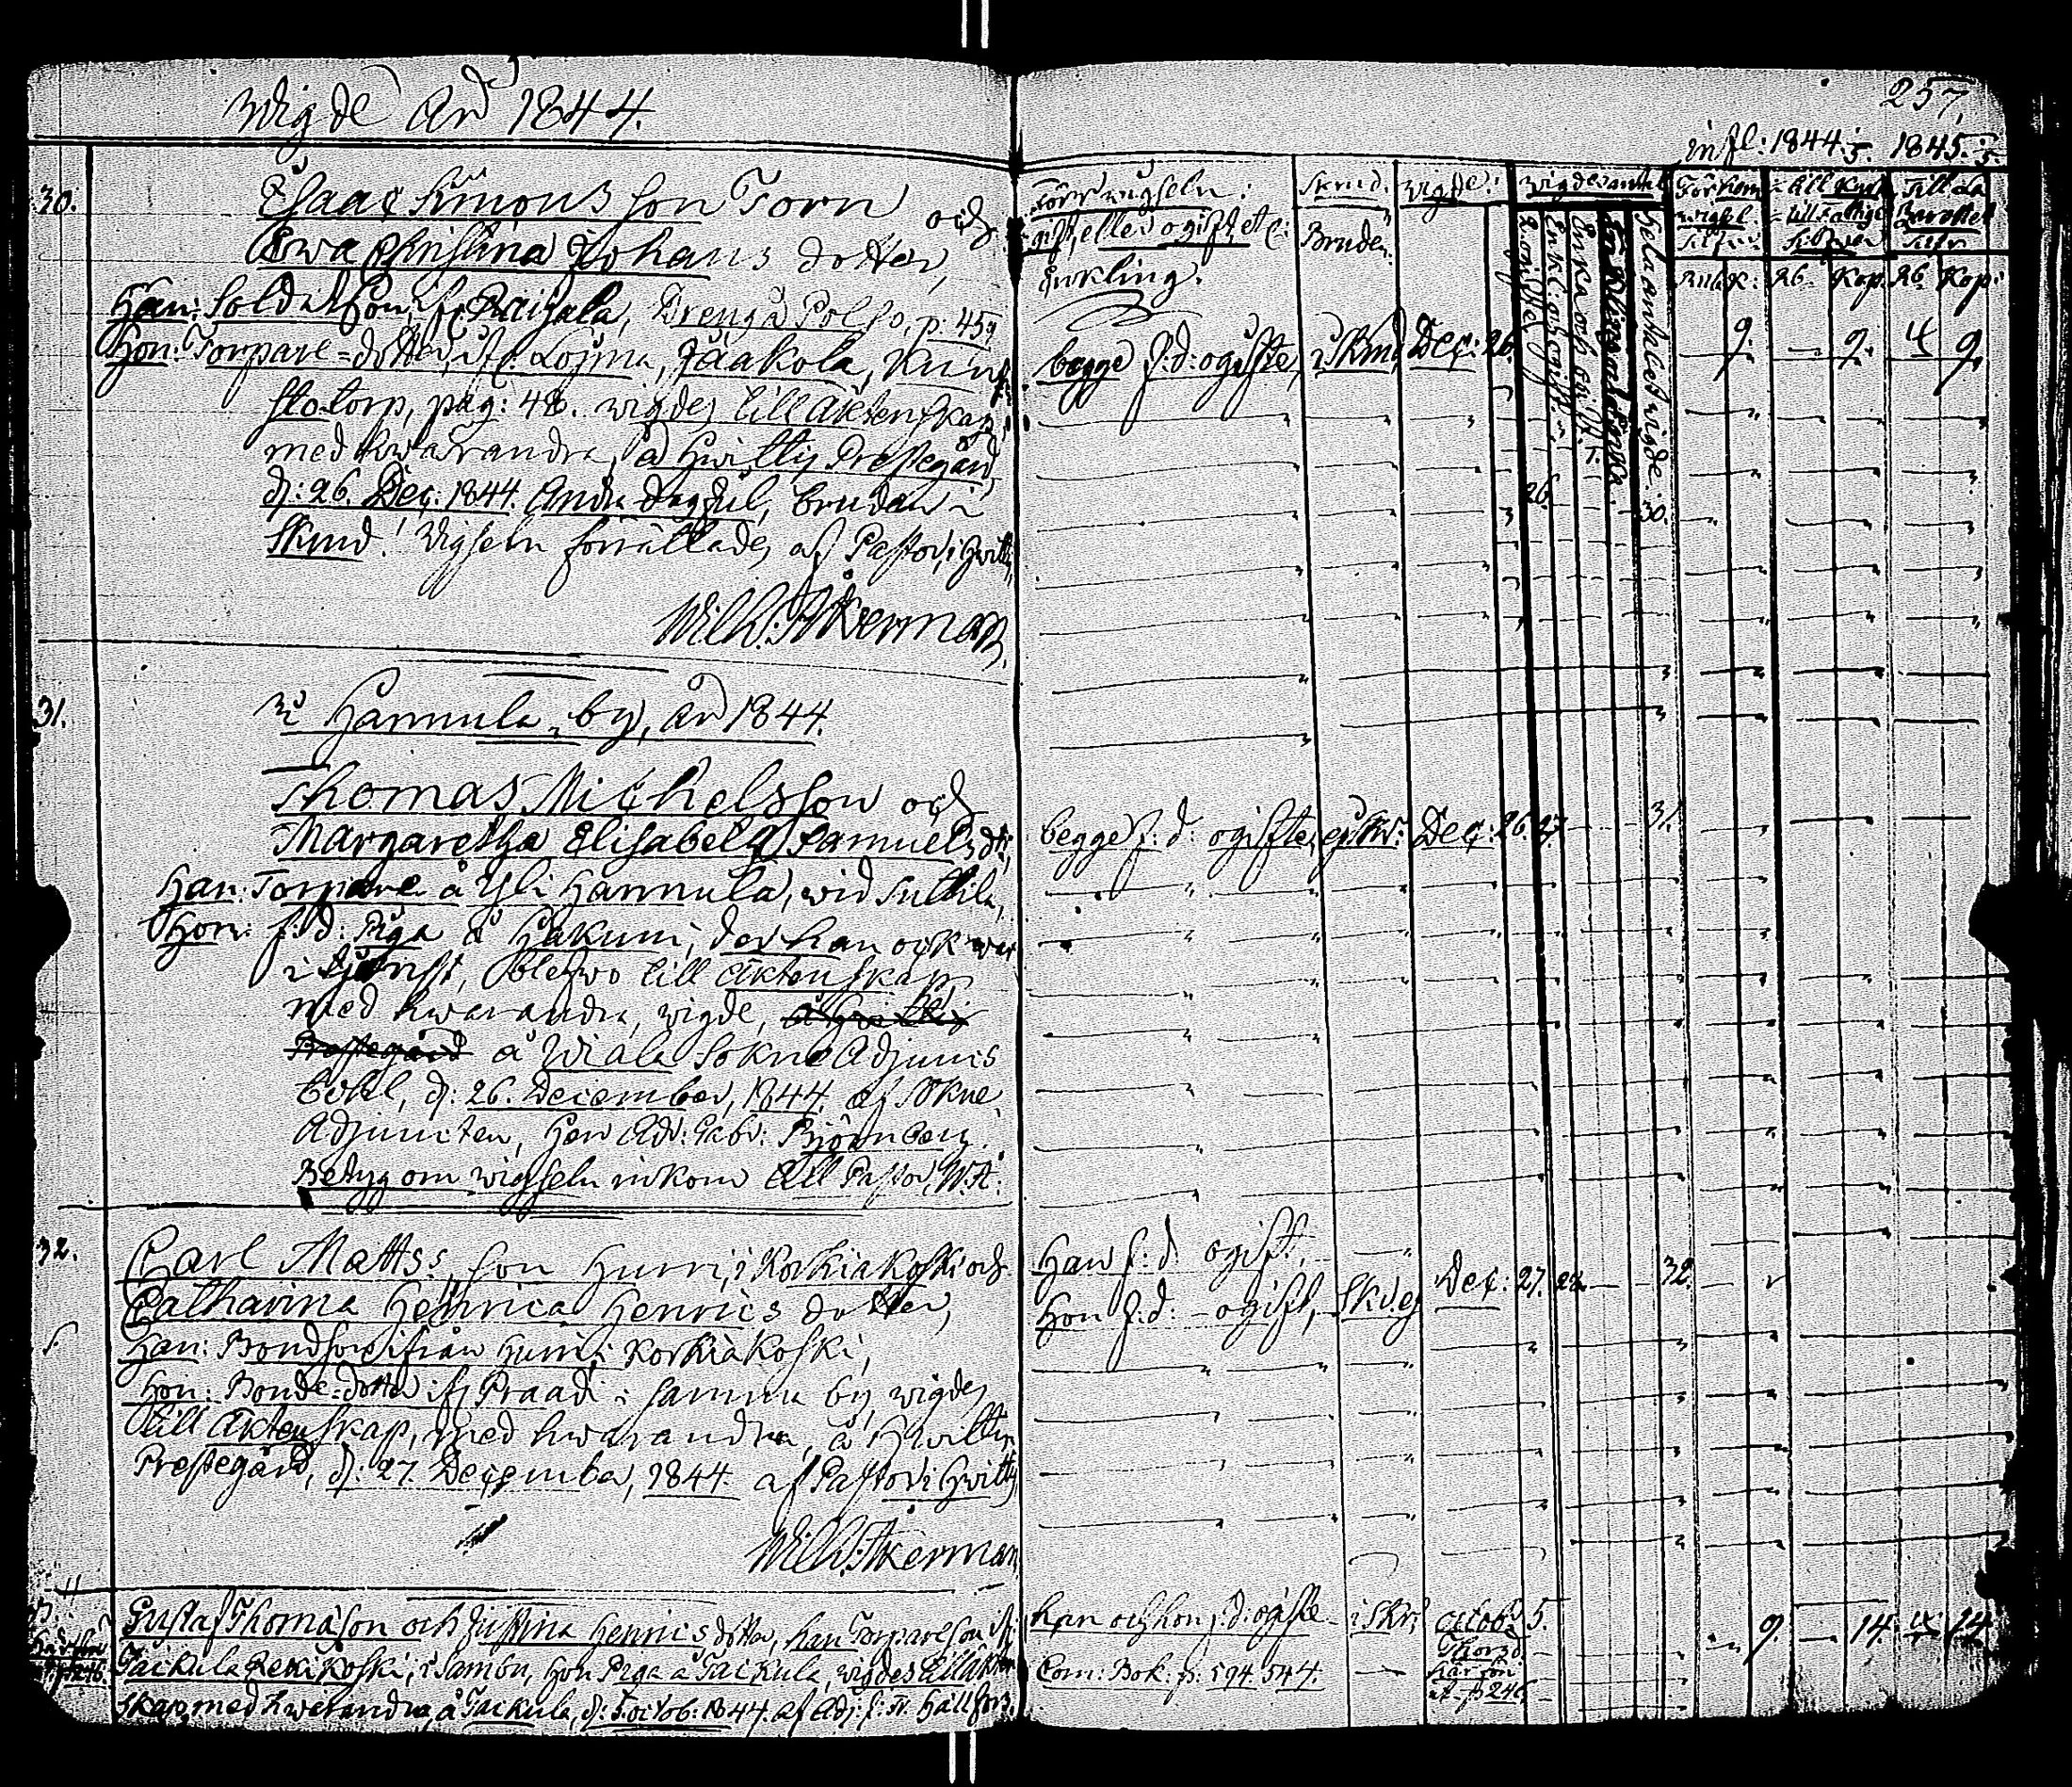 Wigde År 1844.
30.
Isaac Simons son Torn och
Ewa Christina Johans dotter,
Han: Soldat son, ifr Raijala, Dreng å Polso, p. 459
Hon: Torpare-dotter, ifr. Lojma, Jaakola,
storp, pag: 48. wigdes till Äktenskap
med hwarandra, å Hwittis Prestegård,
d: 26. Dec: 1844. Andra dag Jul, bruden i
Skrud. Wigseln förrättades af Pastor i Hwittis
Wilh: Åkerman.
31.
i Hannula by, år 1844.
Thomas Michelsson och
Margaretha Elisabeth Samuels dr,
Han: Torpare å Yli Hannula, wid Suttila,
Hon: f: d: Piga å Hakuni, der han ock war
i tjenst, blefwo till Äktenskap,
med hwarandra, wigde, å Hwittis
Prestegård å Wiala Sokne Adjuncts
bohl, d: 26. December, 1844. af Sokne
Adjuncten, Herr Adr: Gabr: Björnberg.
Betyg om wigseln inkom till Pastor, W. Å.
32.
Carl Matts son Hurri, i Korkiakoski och
Catharina Henrica Henrics dotter,
Han: Bondson ifrån Hurri i Korkiakoski,
Hon: Bonde-dotter ifr Praadi i samma by, wigdes
till Äktenskap, med hwarandra, å Hwittis
Prestegård, d: 27. December, 1844. af Pastor i Hwittis
Wilh: Åkerman
Gustaf Thomasson och Justina Henrics dotter, han Torpareson ifr
Taikula i Sambu, hon Piga å Taikula, wigdes till Äkten
skap med hwarandra, å Taikula, d: 5. Octob: 1844. af Adj: f: Fr. Hallfors.
257,
infl: 1844: 5. 1845. 5.
Förr wigseln:
gift, eller ogift, etc:
Enkling.
Skrud.
Brudei
wigde:
wigdes antal
Hela antalet wigde.
begge f: d: ogifte, i Skrud, Dec: 26.
26. 1. 30.
9. — 9. 4 9.
begge f: d: ogifte, ej skr: Dec: 26. 27. — 31.
Han f: d: ogift,
Hon f: d: ogift, Skr. ej Dec: 27. 28. — 32.
han och hon f: d: ogifte i Skr: Octob: 5.
9. — 14. 14
Com: Bok. p: 594. 544.
p 246.